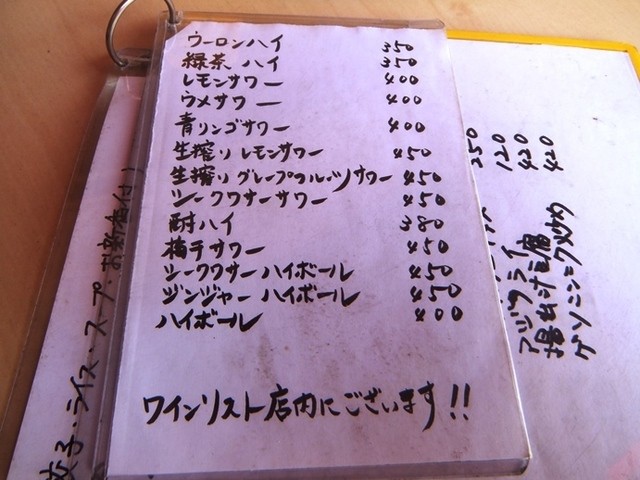 ウーロンハイ 350
緑茶ハイ 350
レモンサワー 400
ウメサワー 400
青リンゴサワー 400
生搾りレモンサワー 450
生搾りグレープフルーツサワー 450
シークワサーサワー 450
酎ハイ 380
梅干サワー 450
シークワサーハイボール 450
ジンジャーハイボール 450
ハイボール 400
ワインリスト店内にございます!!
餃子・ライス・スープ・お新香付)
250
120
420
420
アジフライ
ゲソニンニク炒め